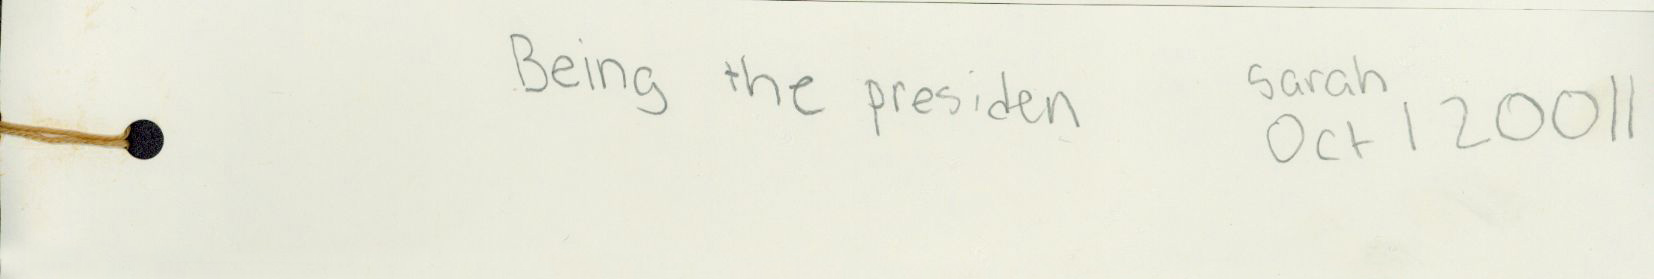 Being the presiden
sarah
Oct 1 20011